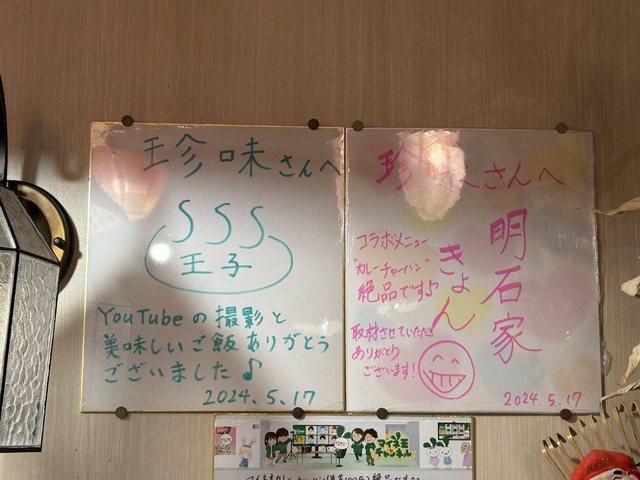 珍味さんへ
SSS
王子
YouTubeの撮影と
美味しいご飯ありがとう
ございました♪
2024.5.17
珍味さんへ
明石家
きょん
コラボメニュー
"カレーチャーハン"
絶品です♪
取材させていただき
ありがとう
ございます!
2024.5.17
マイネ王
チャンネル